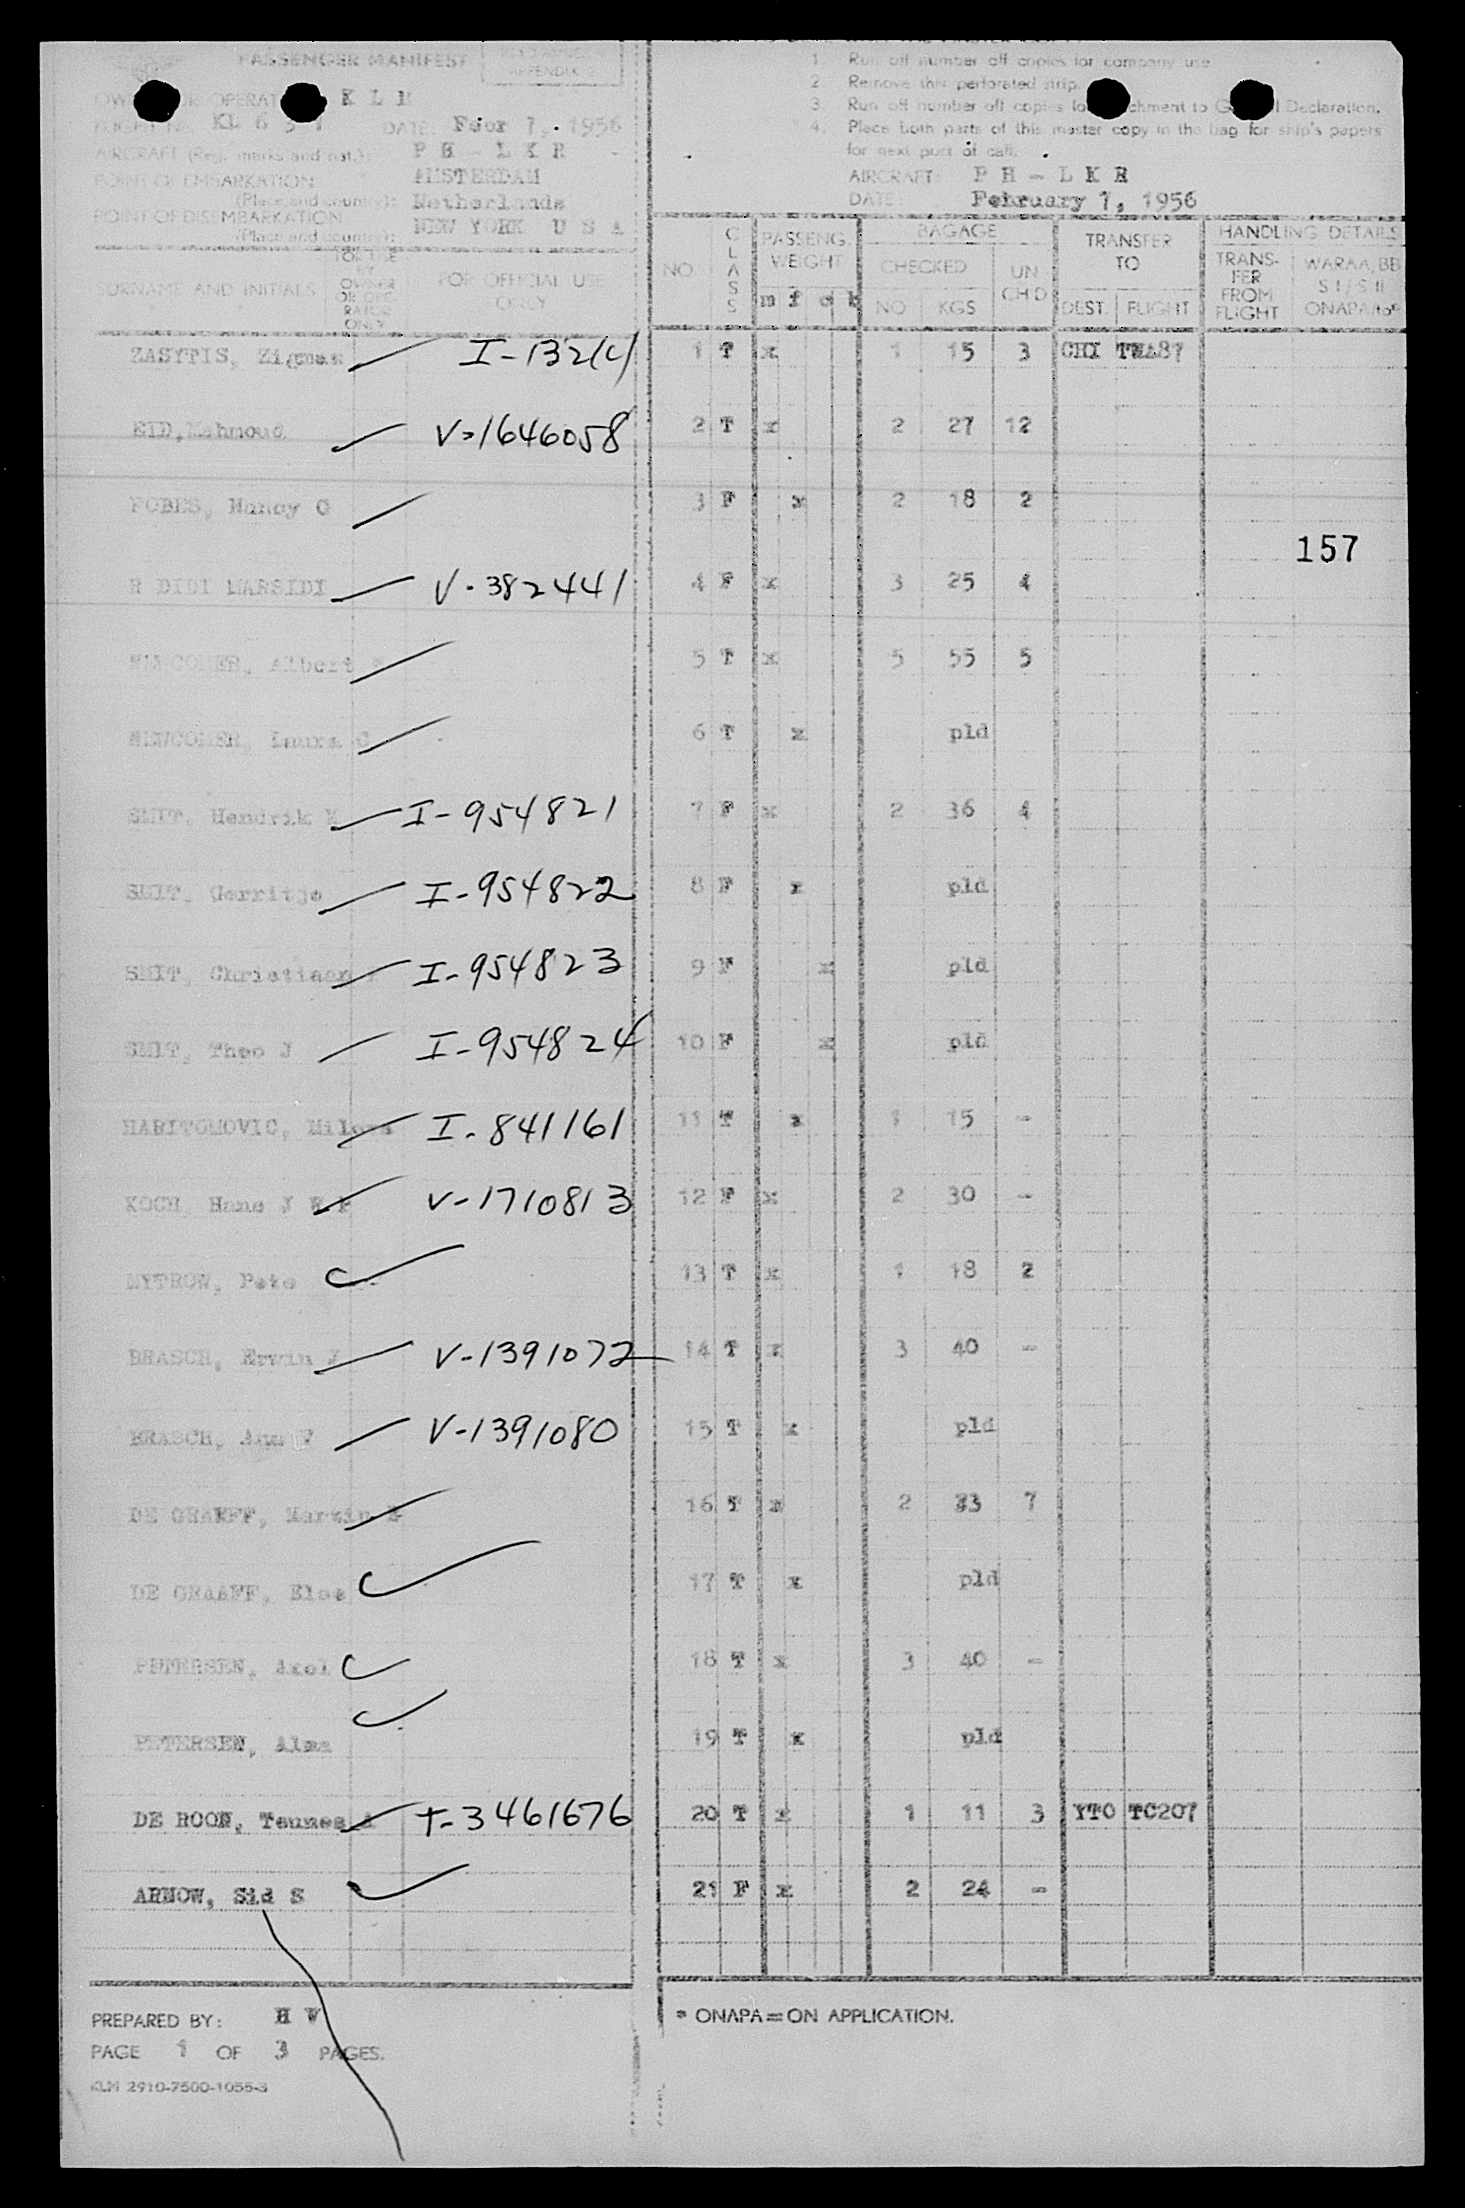 PASSENGER MANIFEST
APPENDIX 2
K L M
FLIGHT No. KL 6
DATE: 1956
AIRCRAFT (Reg. marks and nat.): P H - L K R
POINT OF EMBARKATION: AMSTERDAM
(Place and country): Netherlands
POINT OF DISEMBARKATION
(Place and country): NEW YORK U S A
SURNAME AND INITIALS
FOR USE BY OWNER OR OPERATOR ONLY
FOR OFFICIAL USE ONLY
1. Run off number off copies for company use
2. Remove this perforated strip.
3. Run off number off copies for attachment to General Declaration.
4. Place both parts of this master copy in the bag for ship's papers
for next port of call.
AIRCRAFT: P H - L K R
DATE: February 1, 1956
NO. CLASS PASSENG. WEIGHT m f c b
BAGAGE CHECKED NO KGS UN CH'D
TRANSFER TO DEST. FLIGHT
HANDLING DETAILS TRANS-FER FROM FLIGHT
WARAA, BB S I / S II ONAPA
ZASYTIS, Zigmas 1 T x 1 15 3 CHI
EID, Mahmoud V-1646058 2 T x 2 27 12
FOBES, Nancy 3 F x 2 18 2
157
R DIDI MARSIDI V-382441 4 F x 3 25 4
NEWCOMER, Albert 5 T x 5 55 5
NEWCOMER, Laura C 6 T x pld
SMIT, Hendrik I-954821 7 F x 2 36 4
SMIT, Gerritje I-954822 8 F x pld
SMIT, Christiaan I-954823 9 F x pld
SMIT, Theo J I-954824 10 F x pld
I-841161 11 T x 1 15 -
KOCH, Hans J V-1710813 12 F x 2 30 -
MYTROW, Pete 13 T x 1 18 2
BRASCH, Erwin V-1391072 14 T x 3 40 -
BRASCH, Ann V-1391080 15 T x pld
DE GRAEFF, Martin 16 T x 2 7
DE GRAEFF, Else 17 T x pld
PETERSEN, Axel 18 T x 3 40 -
PETERSEN, Alma 19 T x pld
DE ROON, Teunes A T-3461676 20 T x 1 11 3 YTO TC207
ARNOW, Sid S 21 F x 2 24 -
PREPARED BY: H V
* ONAPA=ON APPLICATION.
PAGE 1 OF 3 PAGES.
KLM 2910-7500-1055-3